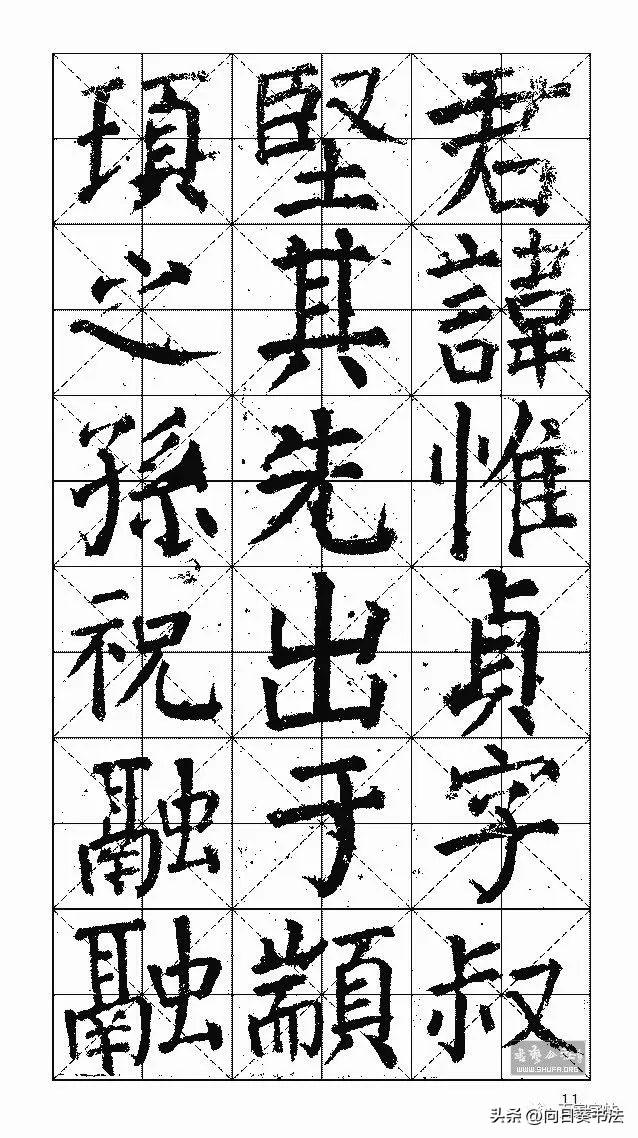 君諱惟貞字叔
堅其先出于顓
頊之孫祝融融
WWW.SHUFA.ORG
11
头条 @向日葵书法